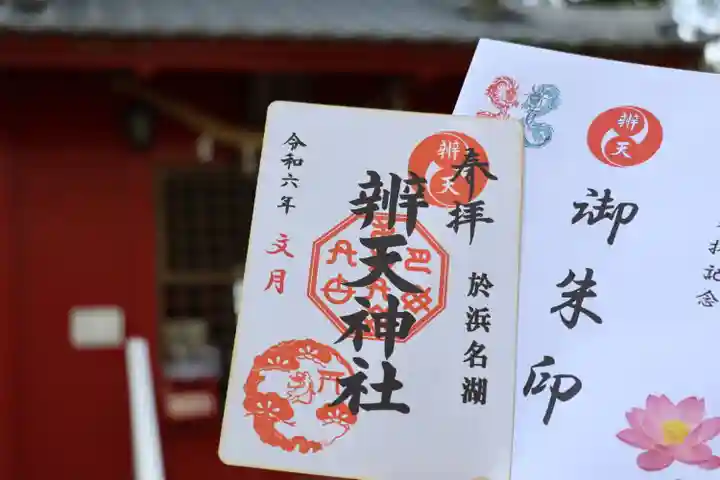 奉拝
辨天
於浜名湖
辨天神社
令和六年
文月
辨天
御朱印
記念